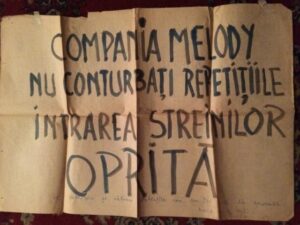 COMPANIA MELODY
NU CONTURBAȚI REPETIȚIILE
INTRAREA STREINILOR
OPRITĂ